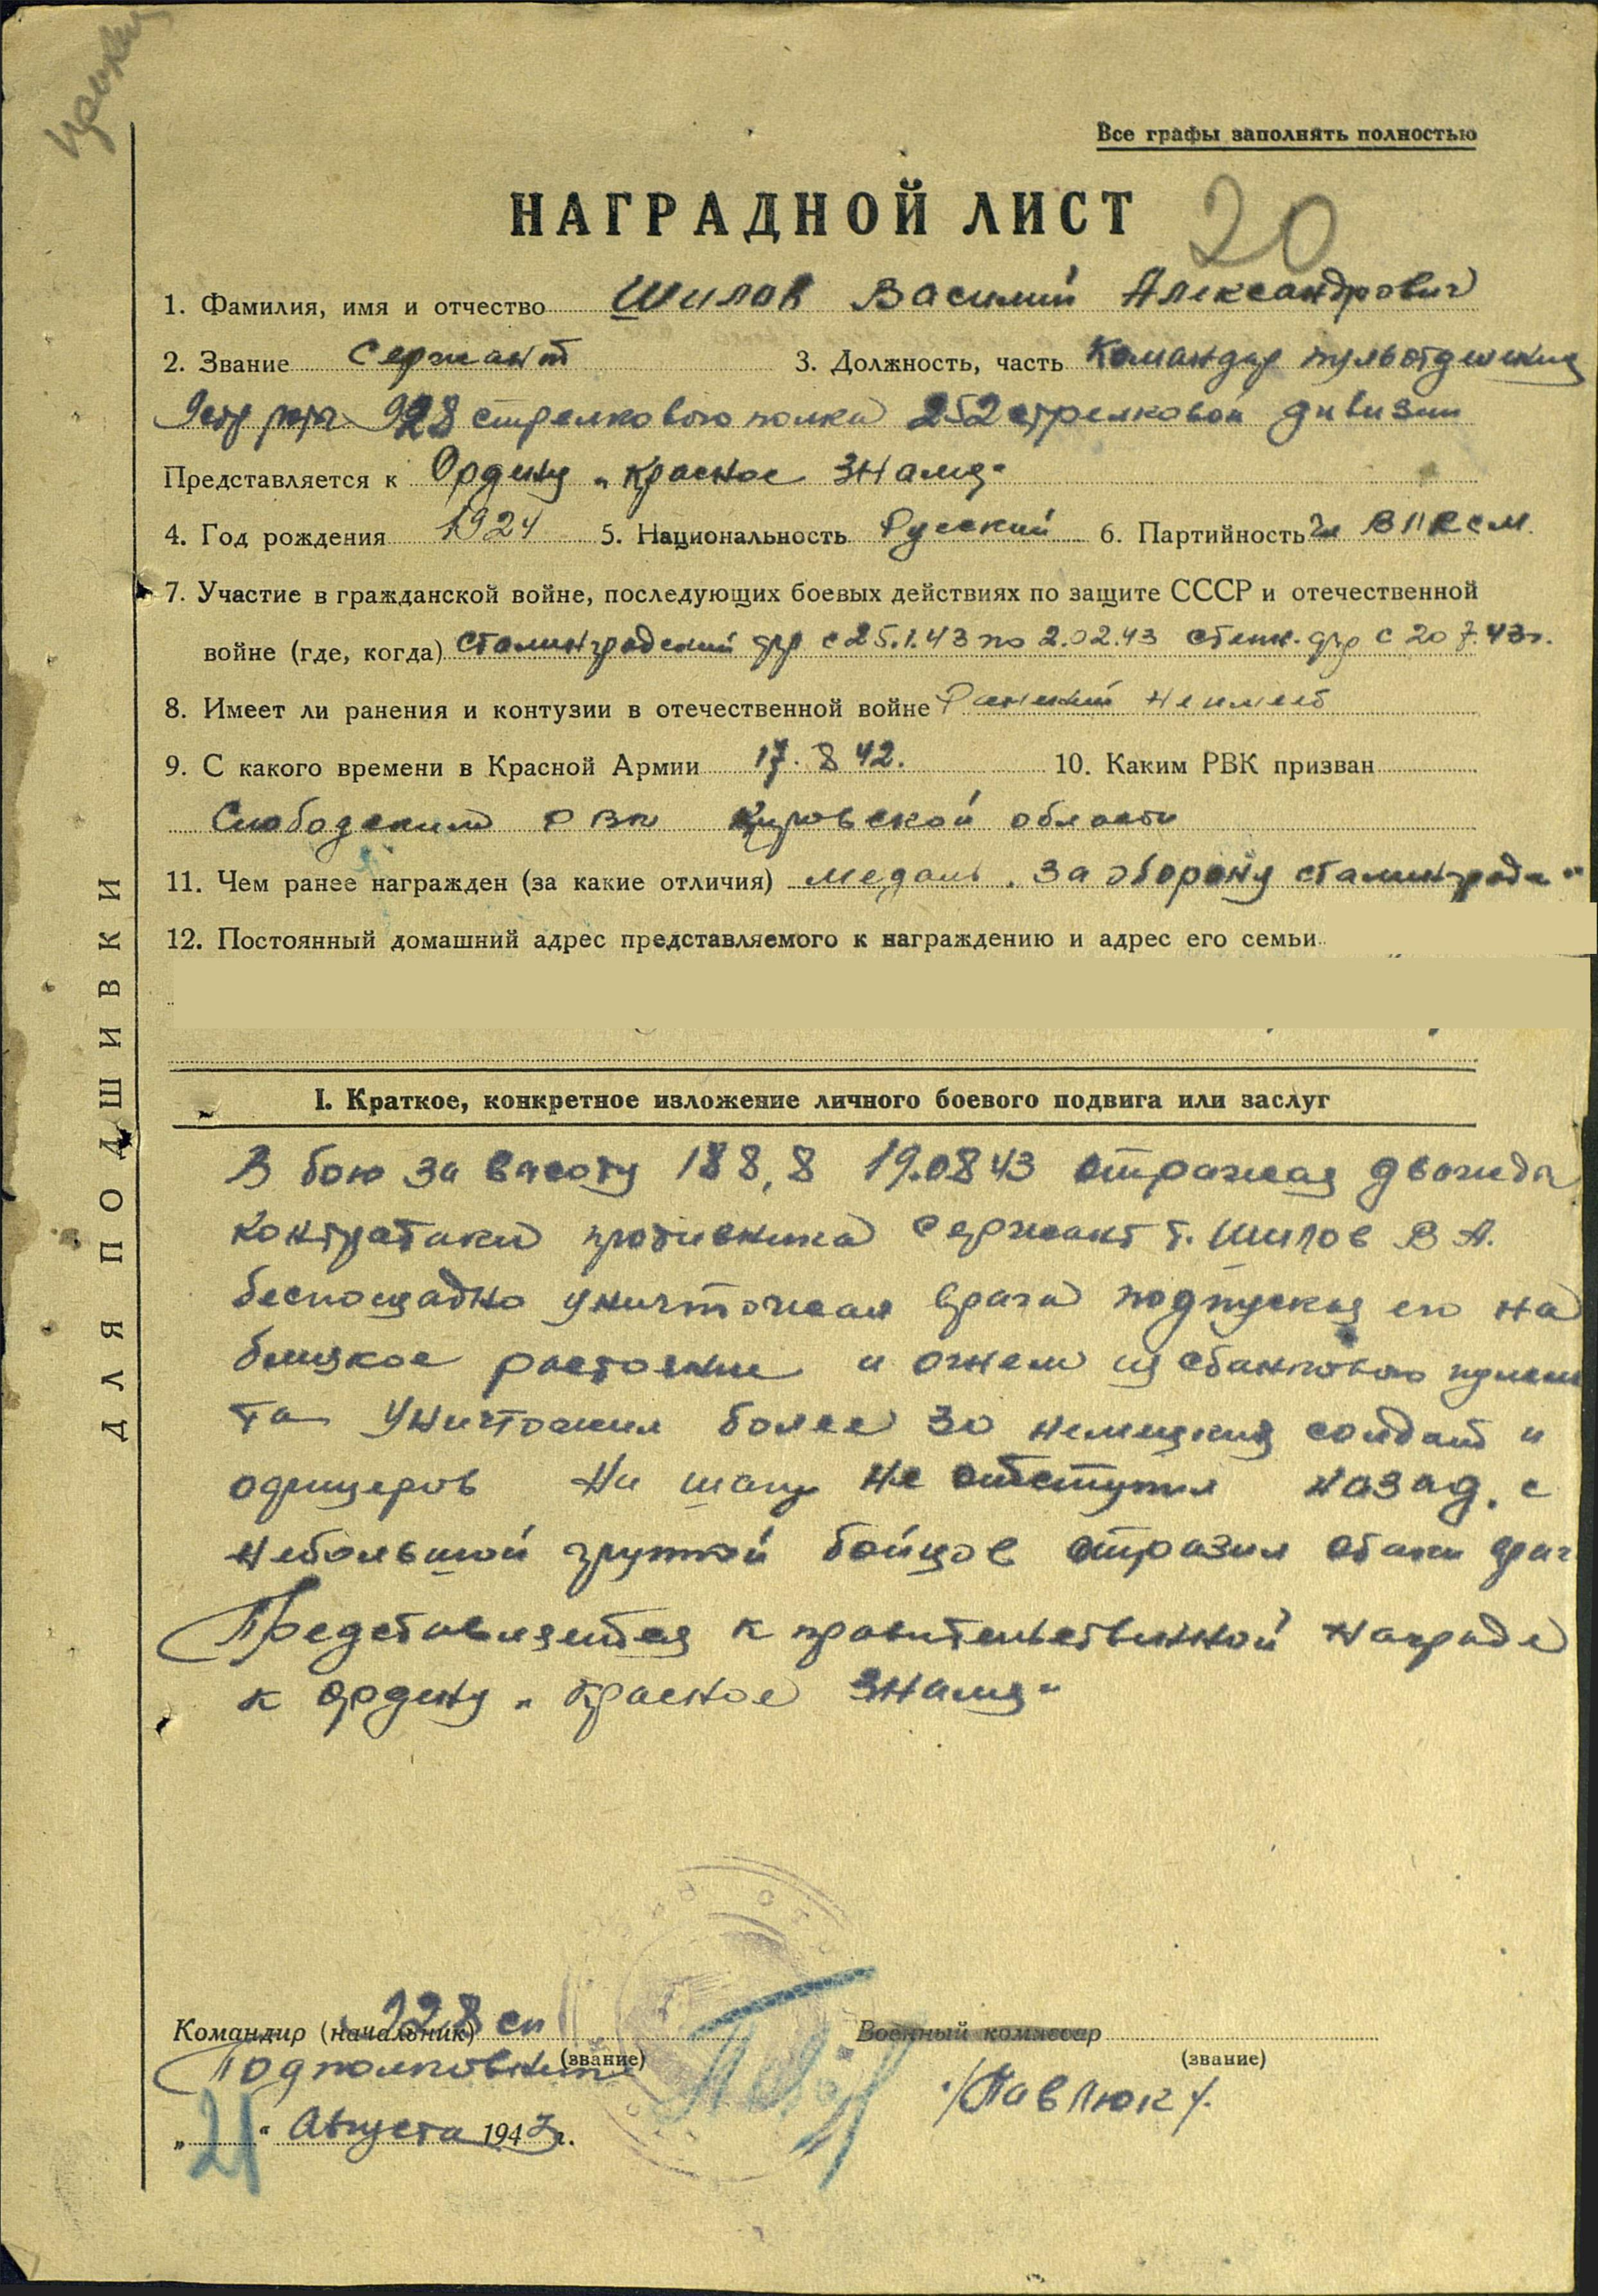 Все графы заполнять полностью
НАГРАДНОЙ ЛИСТ 20
1. Фамилия, имя и отчество Шилов Василий Александрович
2. Звание Сержант 3. Должность, часть Командир пульотделения
9 стр роты 928 стрелкового полка 252 стрелковой дивизии
Представляется к Ордену „Красное Знамя"
4. Год рождения 1924 5. Национальность Русский 6. Партийность чл ВЛКСМ.
7. Участие в гражданской войне, последующих боевых действиях по защите СССР и отечественной
войне (где, когда) Сталинградский фр с 25.1.43 по 2.02.43 степн. фр с 20.7.43г.
8. Имеет ли ранения и контузии в отечественной войне Ранений не имеет
9. С какого времени в Красной Армии 17. 8 42. 10. Каким РВК призван
Слободским РВК Кировской области
11. Чем ранее награжден (за какие отличия) медаль „За оборону Сталинграда"
12. Постоянный домашний адрес представляемого к награждению и адрес его семьи
I. Краткое, конкретное изложение личного боевого подвига или заслуг
В бою за высоту 188,8 19.08 43 отражая дважды
контратаки противника сержант т. Шилов В А.
беспощадно уничтожал врага подпуская его на
близкое растояние и огнем из станкового пулеме
та уничтожил более 30 немецких солдат и
офицеров Ни шагу не отступил назад. с
небольшой группой бойцов отразил атаки враг
Представляется к правительственной награде
к ордену „Красное Знамя"
Командир (начальник) 928 сп Военный комиссар
(звание) (звание)
Подполковник /Павлюк/.
„21" Августа 1943г.
ДЛЯ ПОДШИВКИ